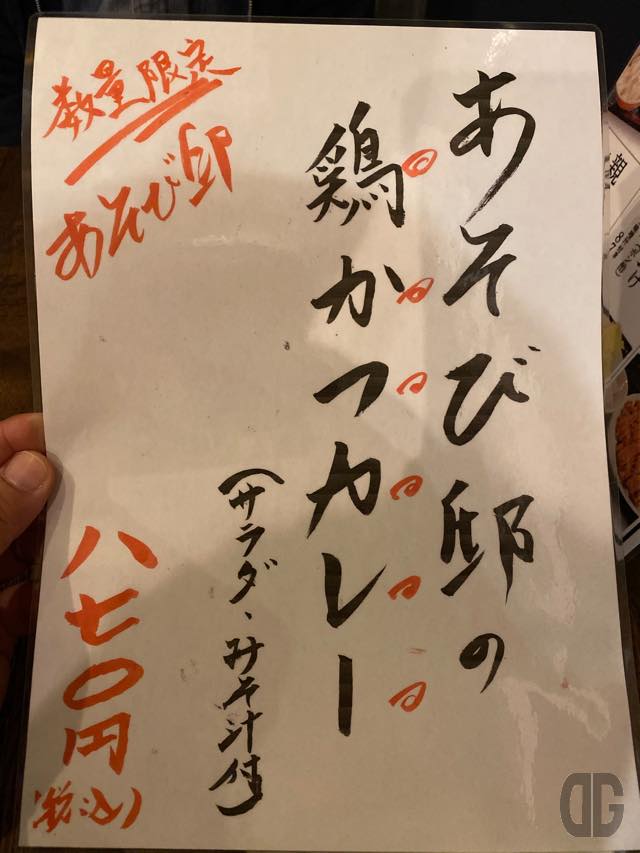 あそび邸の
鶏かつカレー
(サラダ、みそ汁付)
数量限定
あそび邸
八七〇円
(税込)
DG